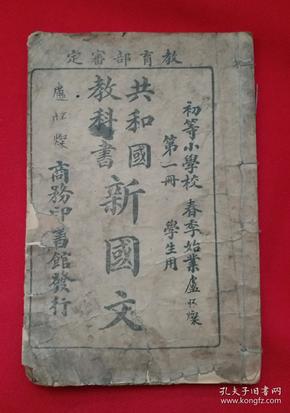 教育部審定
初等小學校 春季始業
第一冊 學生用
共和國
教科書
新國文
商務印書館發行
孔夫子旧书网